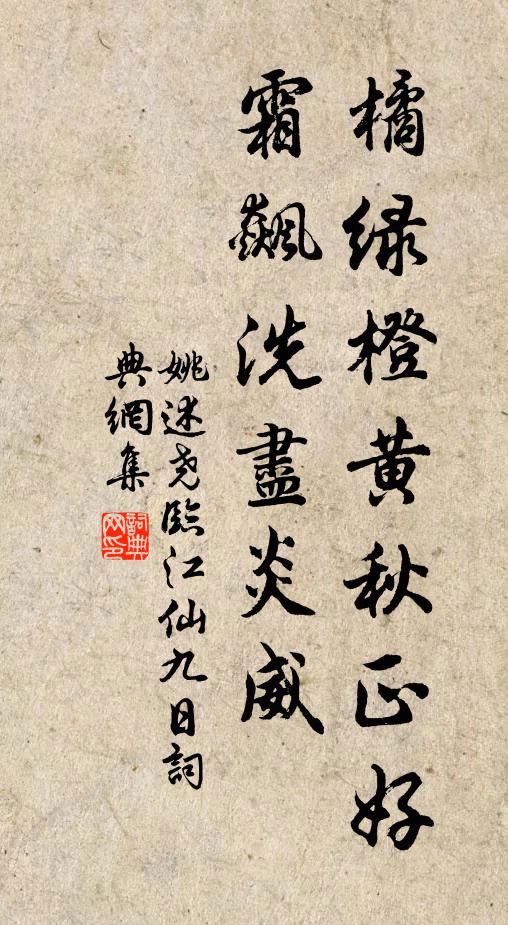 橘绿橙黄秋正好
霜飙洗盡炎威
姚述尧臨江仙九日詞
典網集
詞典网印